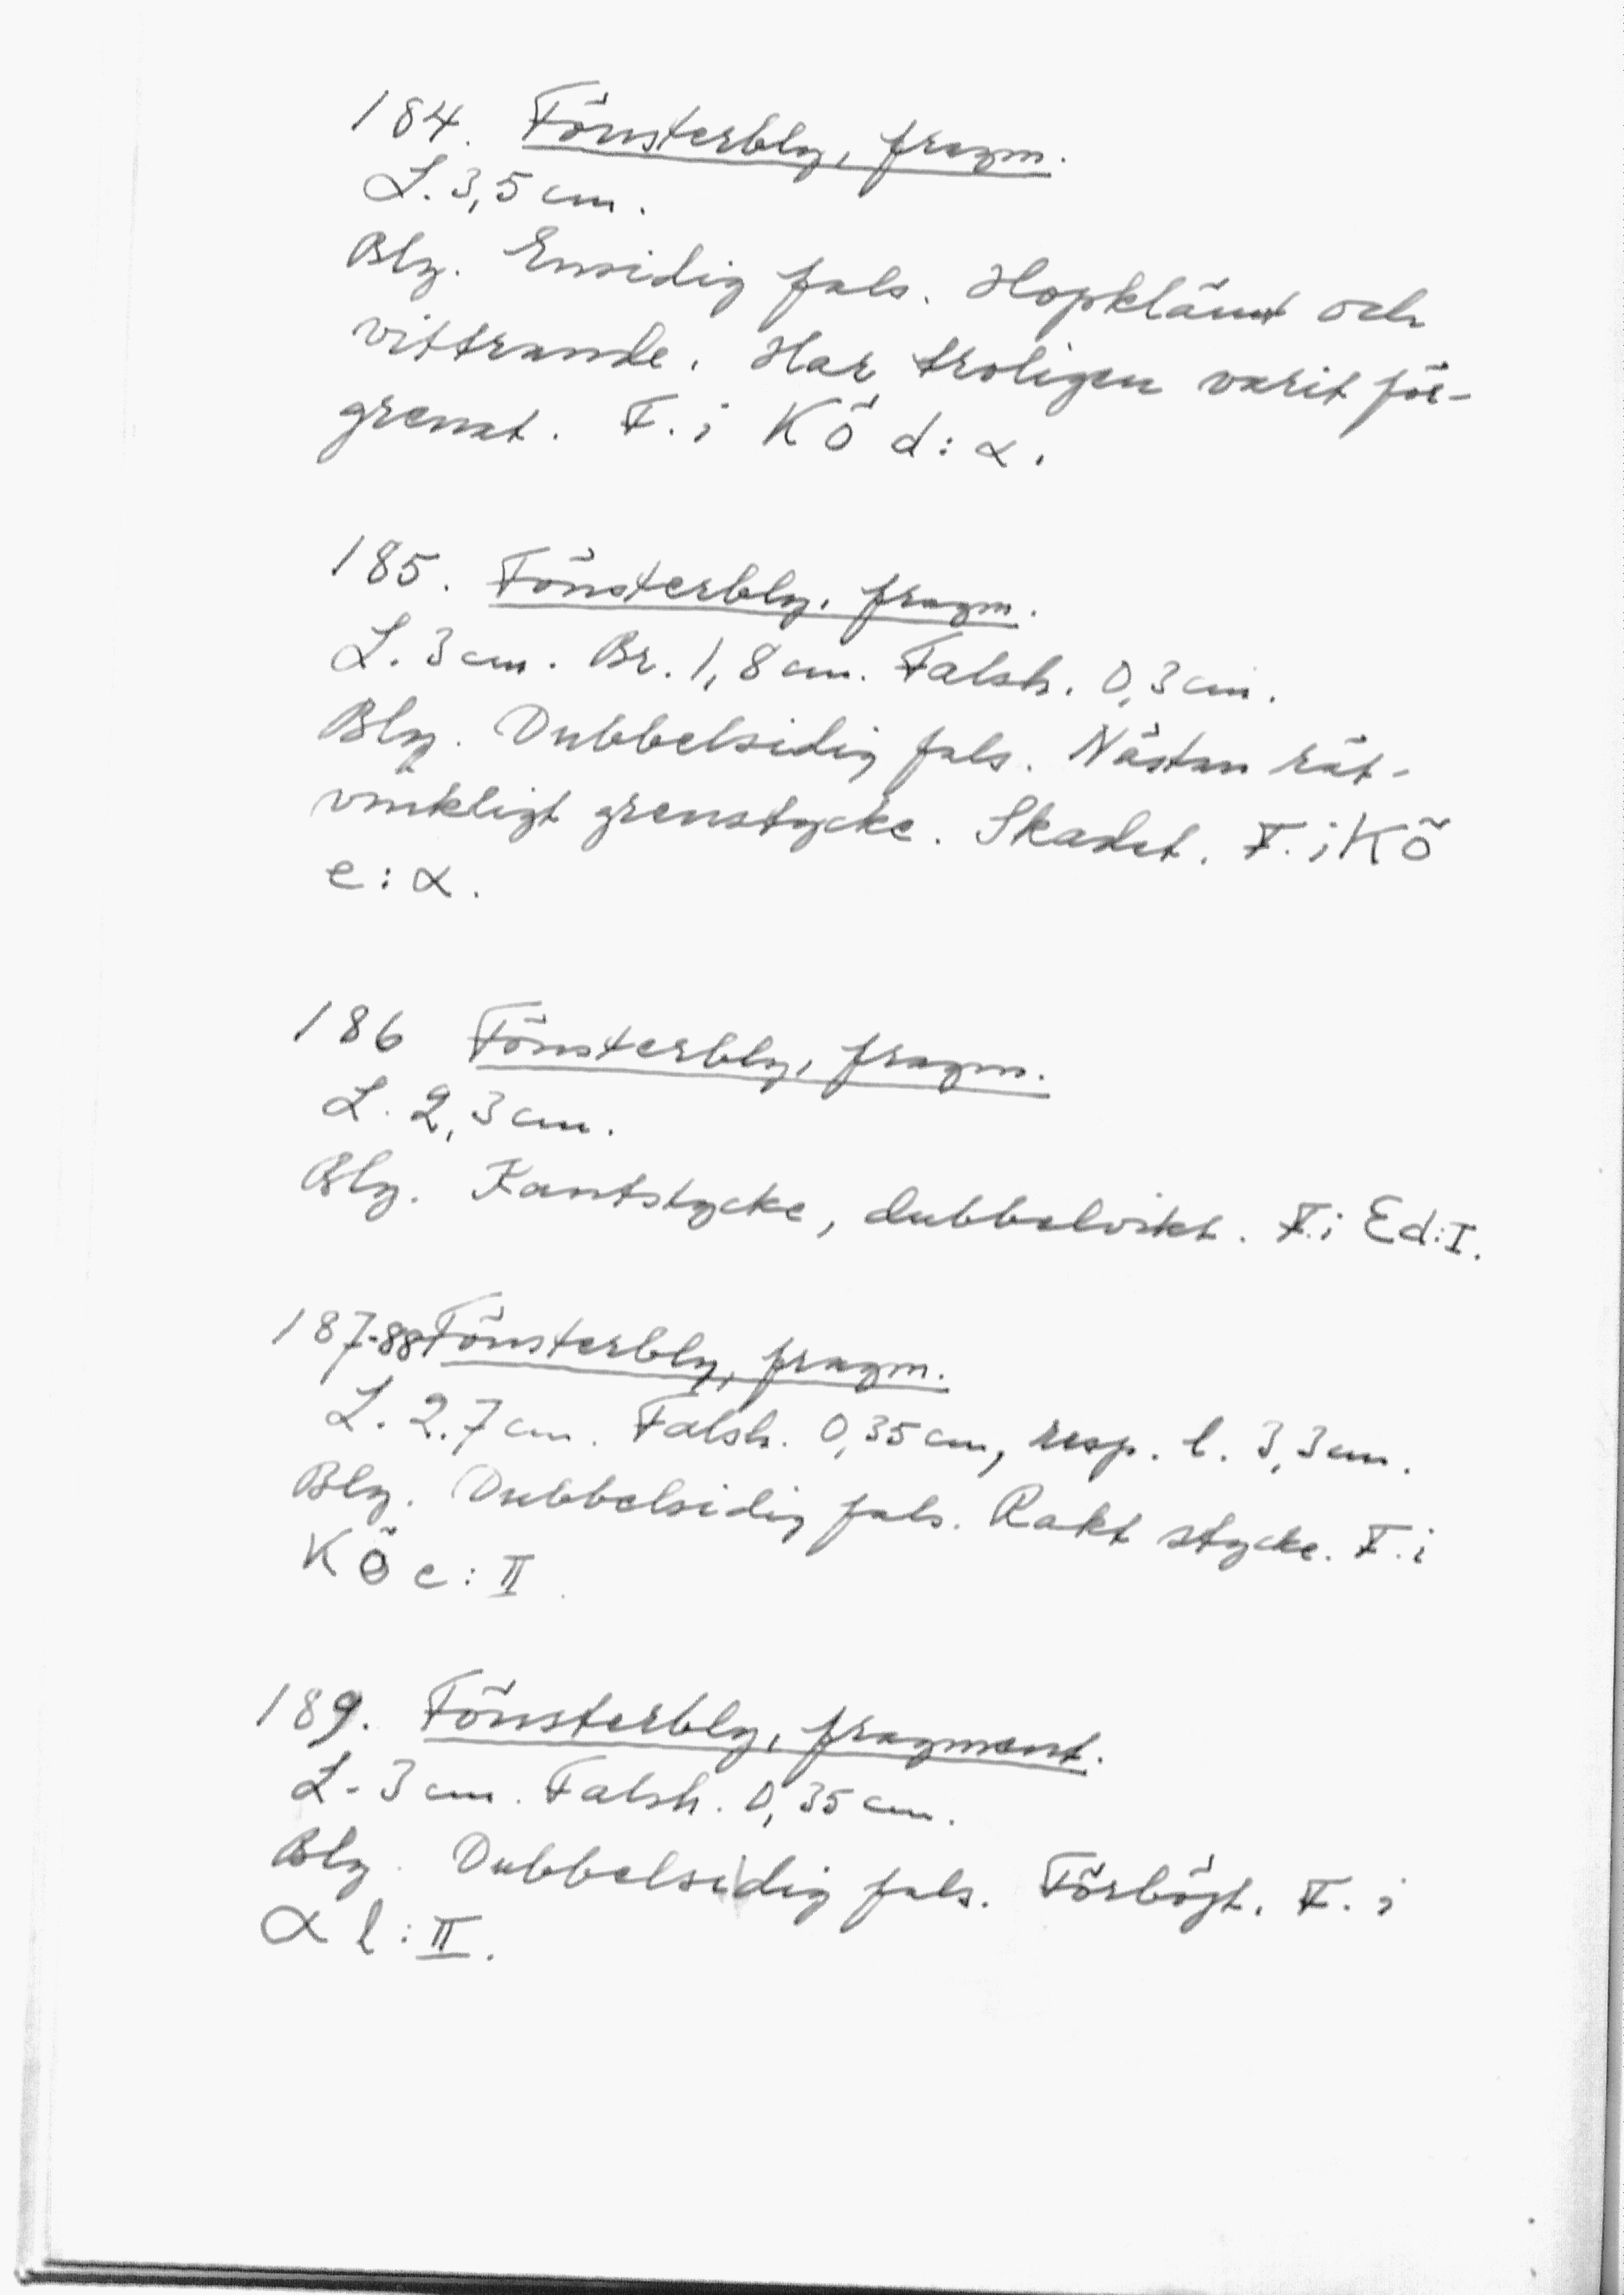 184. Fönsterbly, fragm.
L. 3,5 cm.
Bly. Ensidig fals. Hopklämt och
vittrande. Har troligen varit för-
grenat. F. i KÖ d:α.
185. Fönsterbly, fragm.
L. 3 cm. Br. 1,8 cm. Falsh. 0,3 cm.
Bly. Dubbelsidig fals. Nästan rät-
vinkligt grenstycke. Skadat. F. i KÖ
e:α.
186 Fönsterbly, fragm.
L. 2,3 cm.
Bly. Kantstycke, dubbelvikt. F. i Ed:I.
187-88 Fönsterbly, fragm.
L. 2.7 cm. Falsh. 0,35 cm, resp. l. 3,3 cm.
Bly. Dubbelsidig fals. Rakt stycke. F. i
KÖ c:II.
189. Fönsterbly, fragment.
L. 3 cm. Falsh. 0,35 cm.
Bly. Dubbelsidig fals. Förböjt. F. i
α l:II.